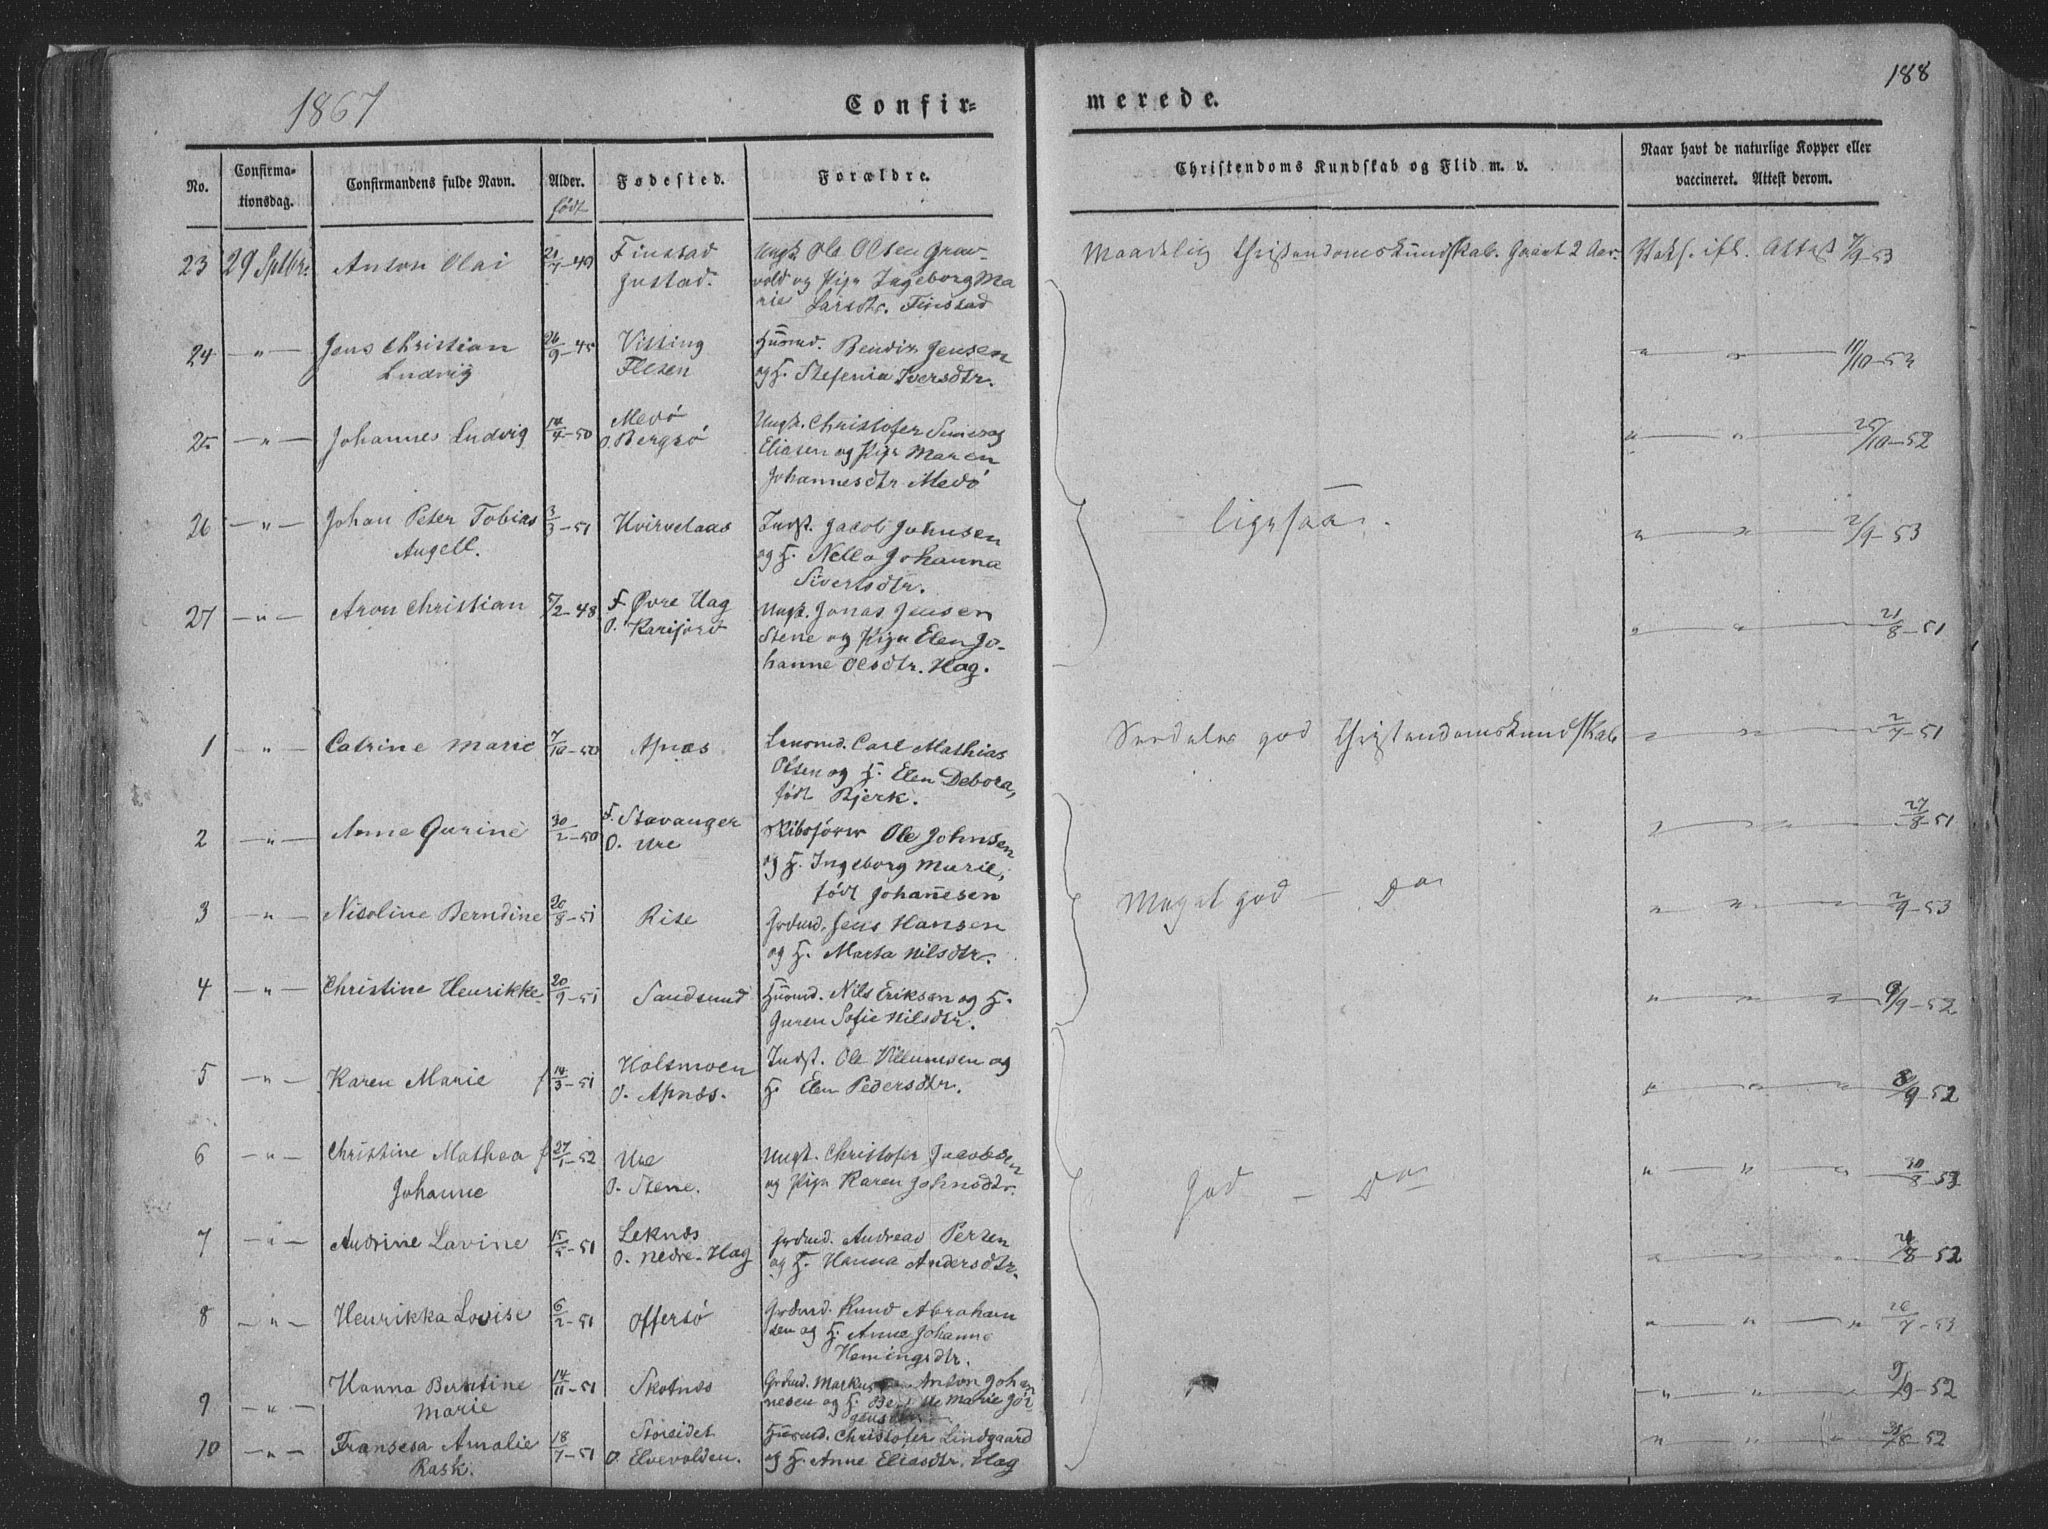 1867
Confir=
merede.
188
No.
Confirma-
tionsdag.
Confirmandens fulde Navn.
Alder.
født
Fødested.
Forældre.
Christendoms Kundskab og Flid m. v.
Naar havt de naturlige Kopper eller
vaccineret. Attest derom.
23 29 Sptbr. Anton Olai 21/7-49 Finstad Ungk. Ole Olsen Grav- Maadelig Christendomskundskab. 2 Aar. Vaks. ifl. Attest 7/9-53
Justad. vold og Pige Ingeborg Ma
rie Larsdtr. Finstad
24 —"— Jens Christian 26/9-45 Vitting Huusmd. Bendix Jensen " " 11/10-53
Ludvig Flesen og H. Stefenia Iversdtr.
25 —"— Johannes Ludvig 14/4-50 Medø Ungk. Christofer " " 25/10-52
O. Bergsø Eliasen og Pige Maren
Johannesdtr Medø
26 —"— Johan Peter Tobias 3/3-51 Hvirvelaas Indst. Jacob Johnsen ligesaa. " " 2/9-53
Angell. og H. Nella Johanna
Sivertsdtr.
27 —"— Aron Christian 5/2-48 F. Øvre Hag Ungk. Jonas Jensen " " 21/8-51
O. Karifjord Stene og Pige Elen Jo-
hanne Olsdtr. Hag.
1 —"— Catrine Marie 7/10-50 Apnæs Lensmd. Carl Mathias Særdeles god Christendomskundskab " " 2/7-51
Olsen og H. Elen Debora,
født Bjerk.
2 —"— Anne Gurine 30/2-50 F. Stavanger Skibsfører Ole Johnsen " " 27/8-51
O. Ure og H. Ingeborg Marie,
født Johannesen
3 —"— Nicoline Berndine 20/8-51 Rise Grdmd. Jens Hansen Meget god — Do " " 2/9-53
og H. Marta Nilsdtr.
4 —"— Christine Henrikke 20/9-51 Sandsund Huusmd. Nils Eriksen og H. " " 9/9-52
Guren Sofie Nilsdtr.
5 —"— Karen Marie f 14/3-51 Holsmoen Indst. Ole Villumsen og " " 8/9-52
O. Apnæs. H. Elen Pedersdtr.
6 —"— Christine Mathea f 27/1-52 Ure Ungk. Christofer Jacobsen god — Do " " 10/8-53
Johanne O. Stene. og Pige Karen Johnsdtr.
7 —"— Andrine Lavine 15/5-51 Leknæs Grdmd. Andreas Persen " " /8-52
O. Nedre-Hag og H. Hanna Andersdtr.
8 —"— Henrikka Lovise 6/2-51 Offersø Grdmd. Knud Abraham " " 26/7-53
sen og H. Anne Johanne
Hemingsdtr.
9 —"— Hanna Berntine 14/11-51 Skotnæs Grdmd. Markus Anton Johan " " 9/9-52
Marie nesen og H. Marie Jør-
gensdtr.
10 —"— Fransesa Amalie 18/7-51 Storeidet Huusmd. Christofer Lindgaard " " /8-52
Rask. O. Elvevolden. og H. Anne Eliasdtr. Hag